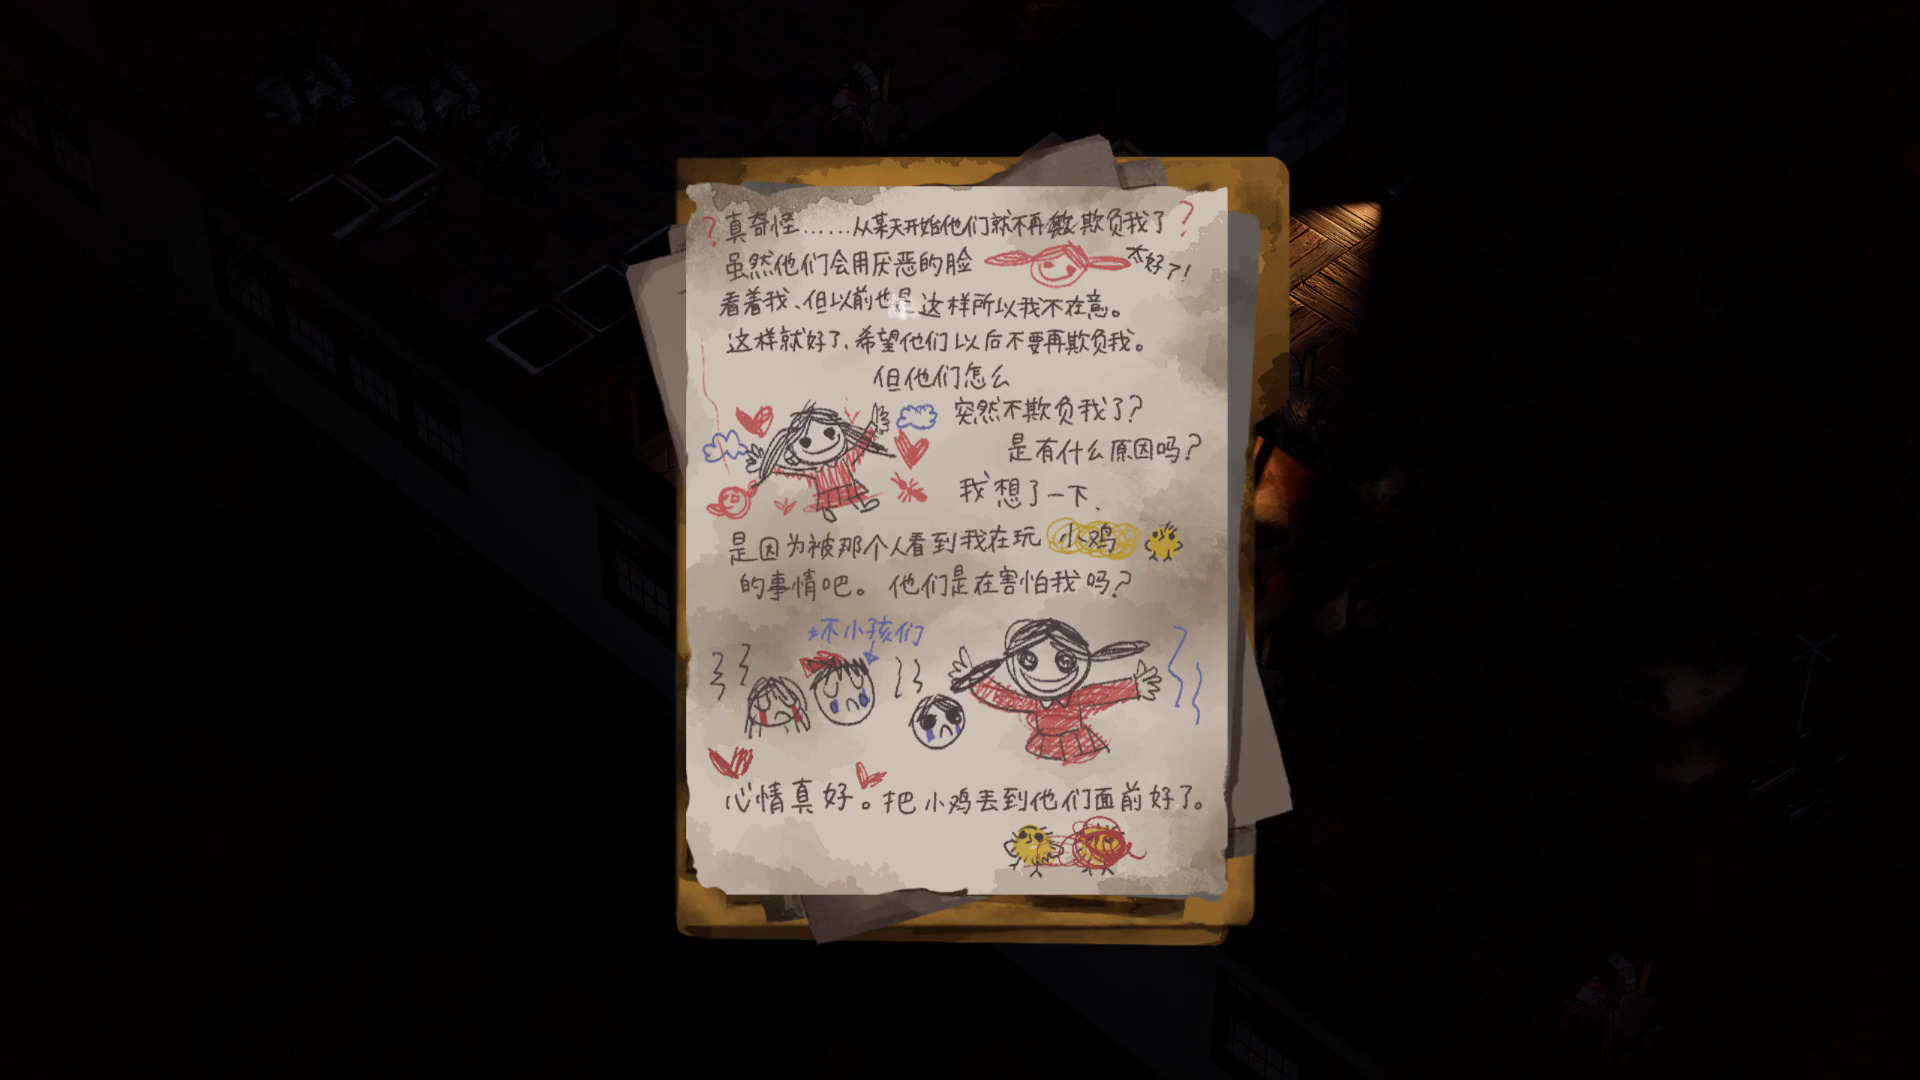 ?真奇怪……从某天开始他们就不再敢欺负我了?
虽然他们会用厌恶的脸
太好了!
看着我、但以前也是这样所以我不在意。
这样就好了、希望他们以后不要再欺负我。
但他们怎么
突然不欺负我了?
是有什么原因吗?
我想了一下、
是因为被那个人看到我在玩小鸡
的事情吧。他们是在害怕我吗?
坏小孩们
心情真好。把小鸡丢到他们面前好了。